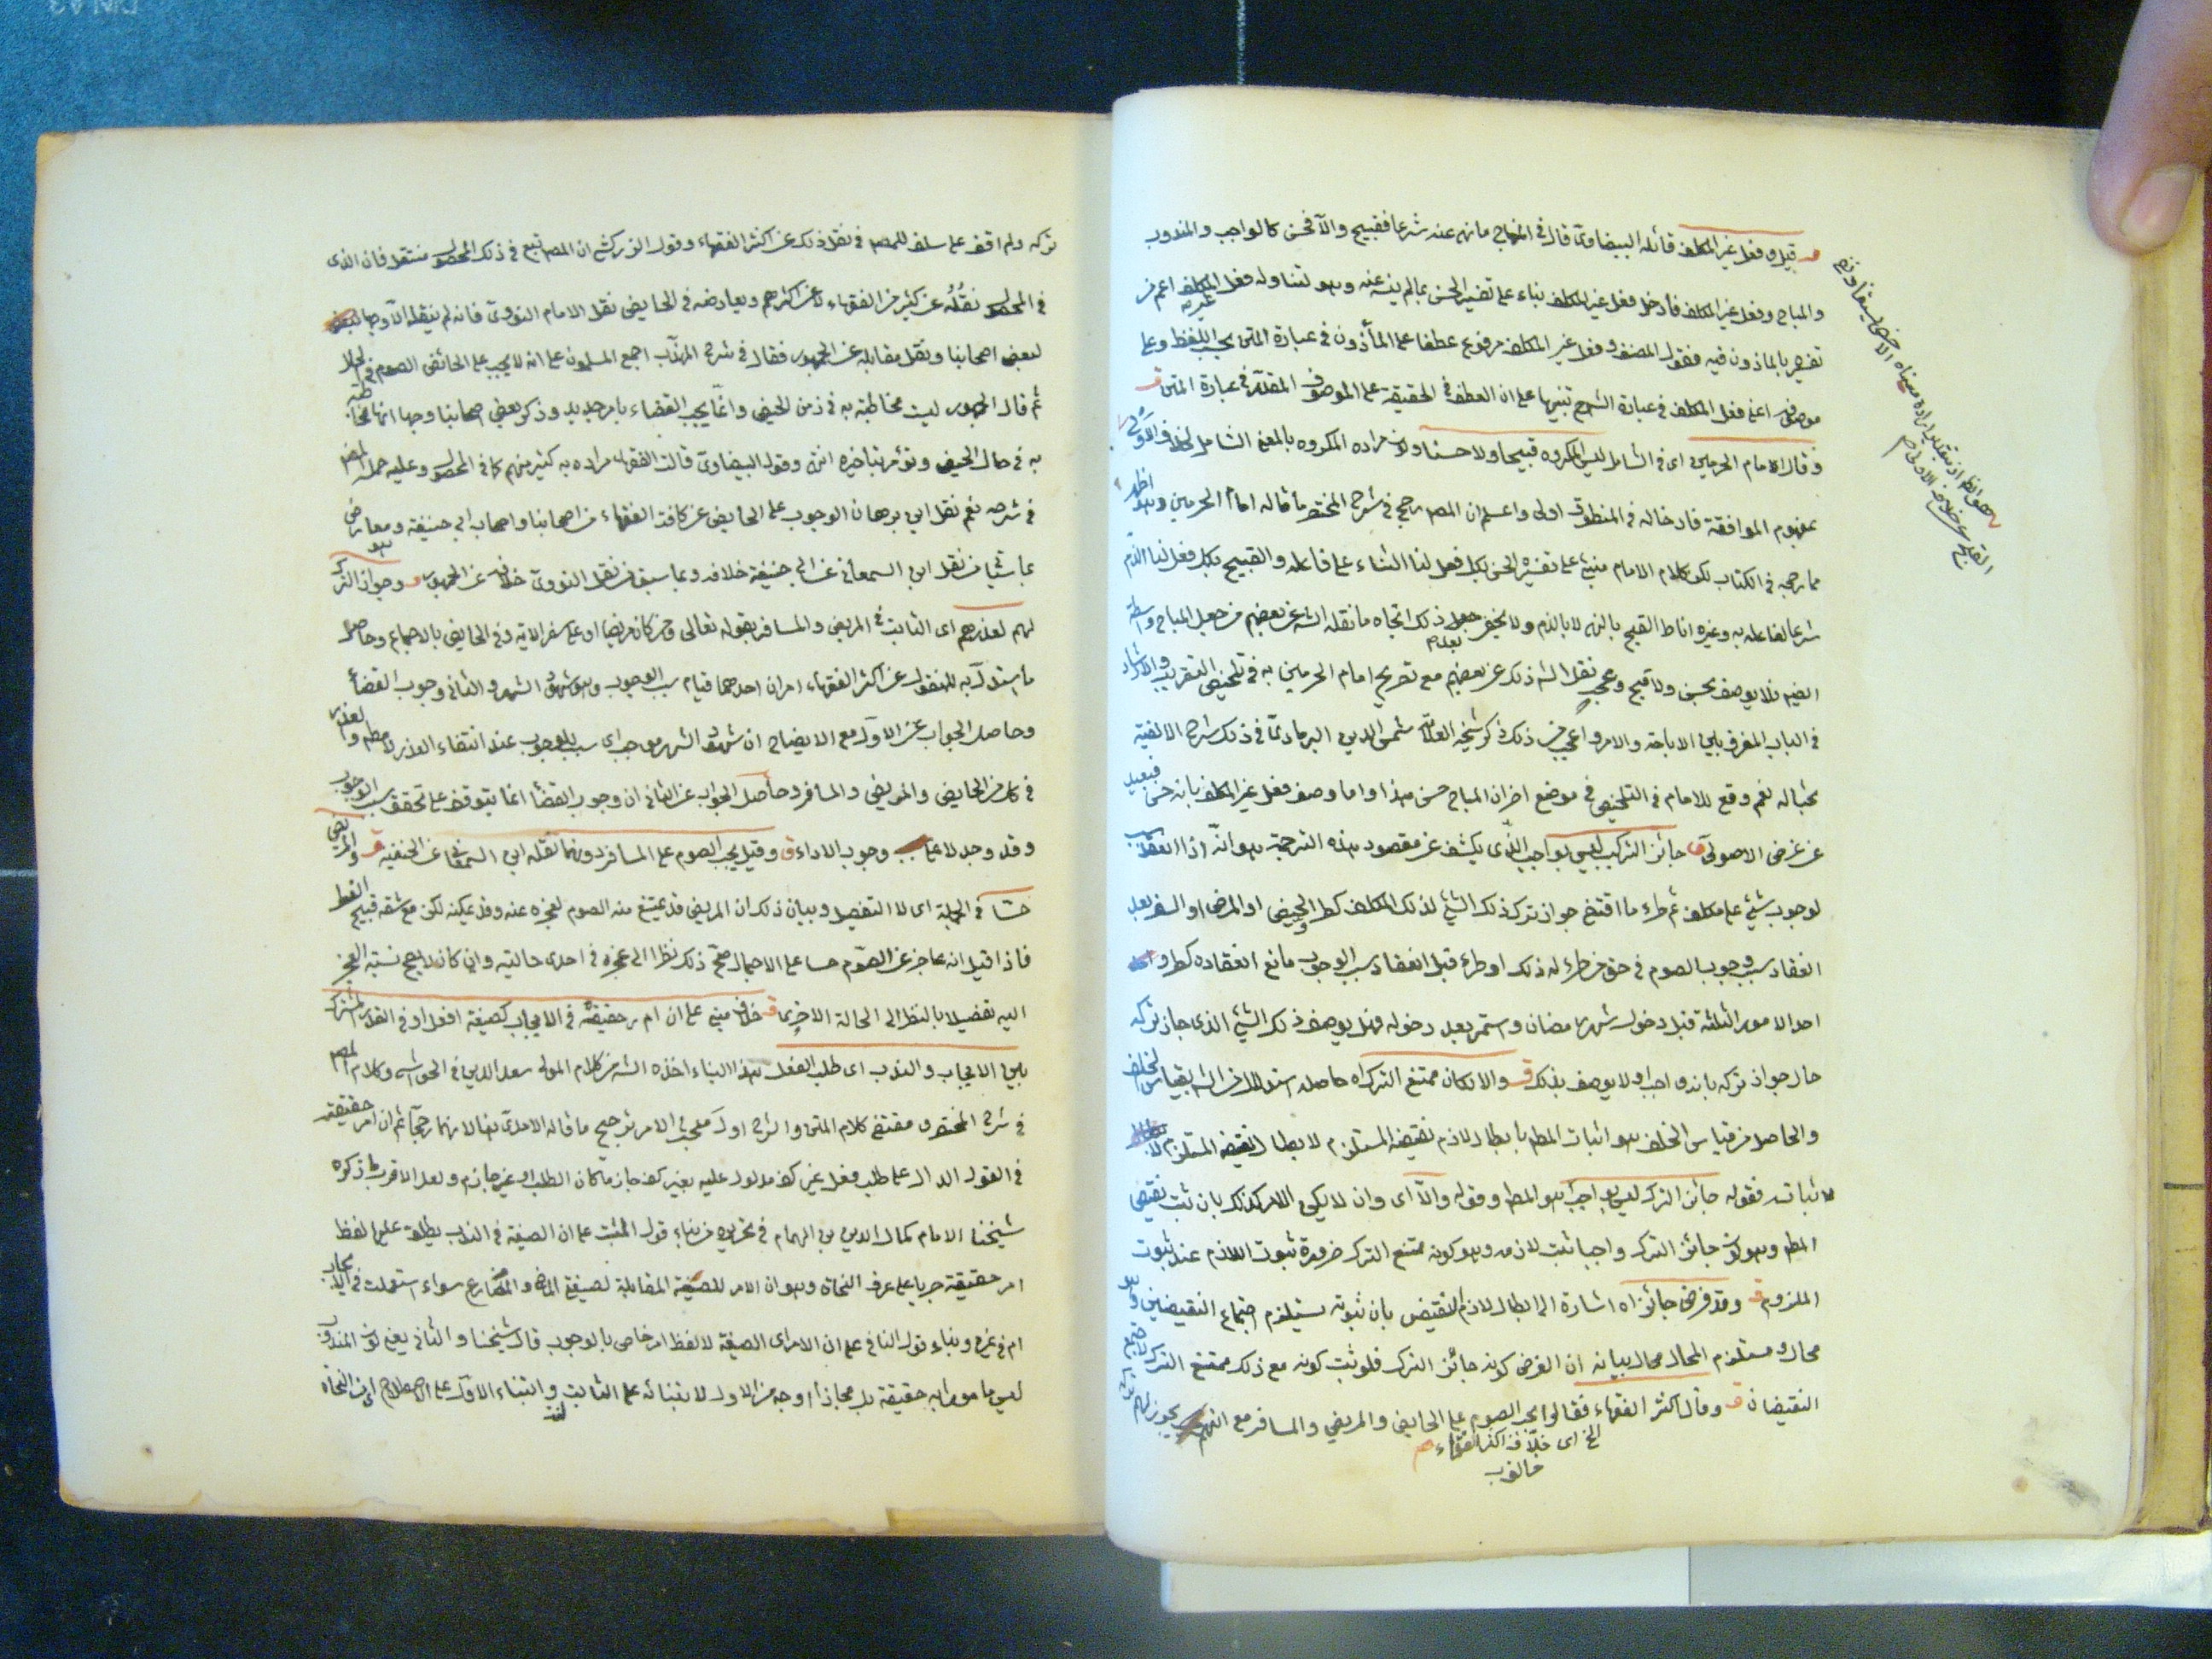 قيل وفعل غير المكلف قائله البيضاوى قال فى المنهاج ما نهى عنه شرعا فقبيح والا فحسن كالواجب والمندوب
والمباح وفعل غير المكلف فأدخل فعل غير المكلف بناء على تفسير الحسن بما لم ينه عنه وهو لتناوله فعل غير المكلف اعم من
تفسيره بالماذون فيه فقول المصنف وفعل غير المكلف مرفوع عطفا على المأذون فى عبارة المتن بحسب اللفظ وعلى
موصوفه اعنى فعل المكلف فى عبارة الشرح تنبيها على ان العطف فى الحقيقة على الموصوف المقدر فى عبارة المتن ق
وقال امام الحرمين اى فى الشامل ليس المكروه قبيحا ولا حسنا ولان مراده المكروه بالمعنى الشامل لخلاف الاولى
بمفهوم الموافقة فادخاله فى المنطوق اولى واعلم ان المص رجح فى شرح المختصر ما قاله امام الحرمين وهو اظهر
مما رجحه فى الكتاب لكن كلام الامام مبنى على تفسيره الحسن بكل فعل لنا الثناء على فاعله والقبيح بكل فعل لنا الذم
شرعا لفاعله به وغيره اناط القبيح بالنهى لا بالذم ولا يخفى بعد ذلك اتجاه ما نقله الش عن بعضهم من جعل المباح واسطة
ايضا فلا يوصف بحسن ولا قبح وعجيب نقل الش ذلك عن بعضهم مع تصريح امام الحرمين به فى تلخيص التقريب والارشاد
فى الباب المفرق بين الاباحة والامر واعجب من ذلك ذكر شيخه العلامة شمس الدين البرماوى فى ذلك شرح الالفية
بحثا له نعم وقع للامام فى التلخيص فى موضع اخر ان المباح حسن هذا واما وصف فعل غير المكلف بانه حسن فبعيد
عن غرض الاصولى ق جائز الترك ليس بواجب الذى يكشف عن مقصود هذه الترجمة هو انه اذا انعقد سبب
لوجوب شئ على مكلف ثم طرء ما اقتضى جواز ترك ذلك الشئ لذلك المكلف كطرو الحيض او المرض او السفر بعد
انعقاد سبب وجوب الصوم فى حق من طرء له ذلك او طرء قبل انعقاد سبب الوجوب مانع انعقاده كطرو
احد الامور الثلثة قبل دخول شهر رمضان واستمر بعد دخوله فهل يوصف ذلك الشئ الذى جاز تركه
حال جواز تركه بانه واجب او لا يوصف بذلك ق والا لكان ممتنع الترك اه حاصله استدلال من الش بقياس الخلف
والحاصل من قياس الخلف هو اثبات المطلوب بابطال لازم نقيضه المستلزم لابطال نقيضه المستلزم
لاثباته فقوله جائز الترك ليس بواجب هو المطلوب وقوله والا اى وان لا يكن الامر كذلك بان ثبت نقيض
المطلوب وهو كون جائز الترك واجبا ثبت لازمه وهو كونه ممتنع الترك ضرورة ثبوت اللازم عند ثبوت
الملزوم ق وقد فرض جائزه اه اشارة الى ابطال لازم النقيض بان ثبوته يستلزم اجتماع النقيضين وهو
محال ومستلزم المحال محال بيانه ان الفرض كونه جائز الترك فلو ثبت كونه مع ذلك ممتنع الترك لاجتمع
النقيضان ق وقال اكثر الفقهاء فقالوا يجب الصوم على الحايض والمريض والمسافر مع انهم يجوز لهم
الخ اى خلافه اكثر الفقهاء
تركه ولم اقف على سلف للمص فى نقل ذلك عن اكثر الفقهاء وقول الزركشى ان المص تبع فى ذلك المحصول منتقد فان الذى
فى المحصول نقله عن كثير من الفقهاء لا عن اكثرهم ويعارضه فى الحايض نقل الامام النووى فانه لم ينقله الا وجها
لبعض اصحابنا ونقل مقابله عن الجمهور فقال فى شرح المهذب اجمع المسلمون على انه لا يجب على الحائض الصوم فى الحال
ثم قال الجمهور ليست مخاطبة به فى زمن الحيض وانما يجب القضاء بامر جديد وذكر بعض اصحابنا وجها انها مخاطبة
به فى حال الحيض وتؤمر بتاخيره انتهى وقول البيضاوى قالت الفقهاء مراده به كثير منهم كما فى المحصول وعليه حمله المص
فى شرحه نعم نقل ابن برهان الوجوب على الحايض عن كافة الفقهاء من اصحابنا واصحاب ابى حنيفة وهو معارض
بما سياتى من نقل ابن السمعانى عن ابى حنيفة خلافه وبما سبق من نقل النووى خلافه عن الجمهور ق وجواز الترك
لهم لعذرهم اى الثابت فى المريض والمسافر بقوله تعالى ومن كان مريضا او على سفر الاية وفى الحايض بالاجماع وحاصل
ما استدل به للمنقول عن اكثر الفقهاء امران احدهما قيام سبب الوجوب وهو شهود الشهر والثانى وجوب القضاء
وحاصل الجواب عن الاول مع الايضاح ان شهود الشهر موجب اى سبب للوجوب عند انتفاء العذر لا مطلقا والعذر
فى كل من الحايض والمريض والمسافر وحاصل الجواب عن الثانى ان وجوب القضاء انما يتوقف على تحقق سبب الوجوب
وقد وجد لا على وجوب الاداء ق وقيل يجب الصوم على المسافر دونهما نقله ابن السمعانى عن الحنفية ق والمريض
حسا فى الجملة اى لا التفصيل وبيان ذلك ان المريض قد يمتنع منه الصوم لعجزه عنه وقد يمكنه لكن مع مشقة تبيح الفطر
فاذا قيل انه عاجز عن الصوم حسا على الاجمال صح ذلك نظرا الى عجزه فى احدى حالتيه وان كان لا يصح نسبة العجز
اليه تفصيلا بالنظر الى الحالة الاخرى ق خلاف مبنى على ان ام ر حقيقة فى الايجاب كصيغة افعل او فى القدر المشترك
بين الايجاب والندب اى طلب الفعل هذا البناء اخذه الش من كلام المولى سعد الدين فى الحواشى وكلام المص
فى شرح المختصر ومقتضى كلام المتن والشرح اول مبحث الامر ترجيح ما قاله الامدى
فى القول الدال على طلب فعل غير كف مدلول عليه بغير كف جازما كان الطلب او غير جازم ولعل الاقرب ما ذكره
شيخنا الامام كمال الدين بن الهمام فى تحريره من بناء قول المثبت على ان الصيغة فى الندب يطلق عليها لفظ
امر حقيقة جريا على عرف النحاة وهو ان الامر للصيغة المقابلة لصيغتى الماضى والمضارع سواء استعملت فى الايجاب
ام فى غيره وبناء قول النافى على ان الامر اى الصيغة لا لفظ امر خاص بالوجوب قال شيخنا والثانى يعنى كون المندوب
ليس مامورا به حقيقة بل مجازا اوجه من الاول لابتنائه على الثابت لغة وابتناء الاول على الاصطلاح اى النحاة